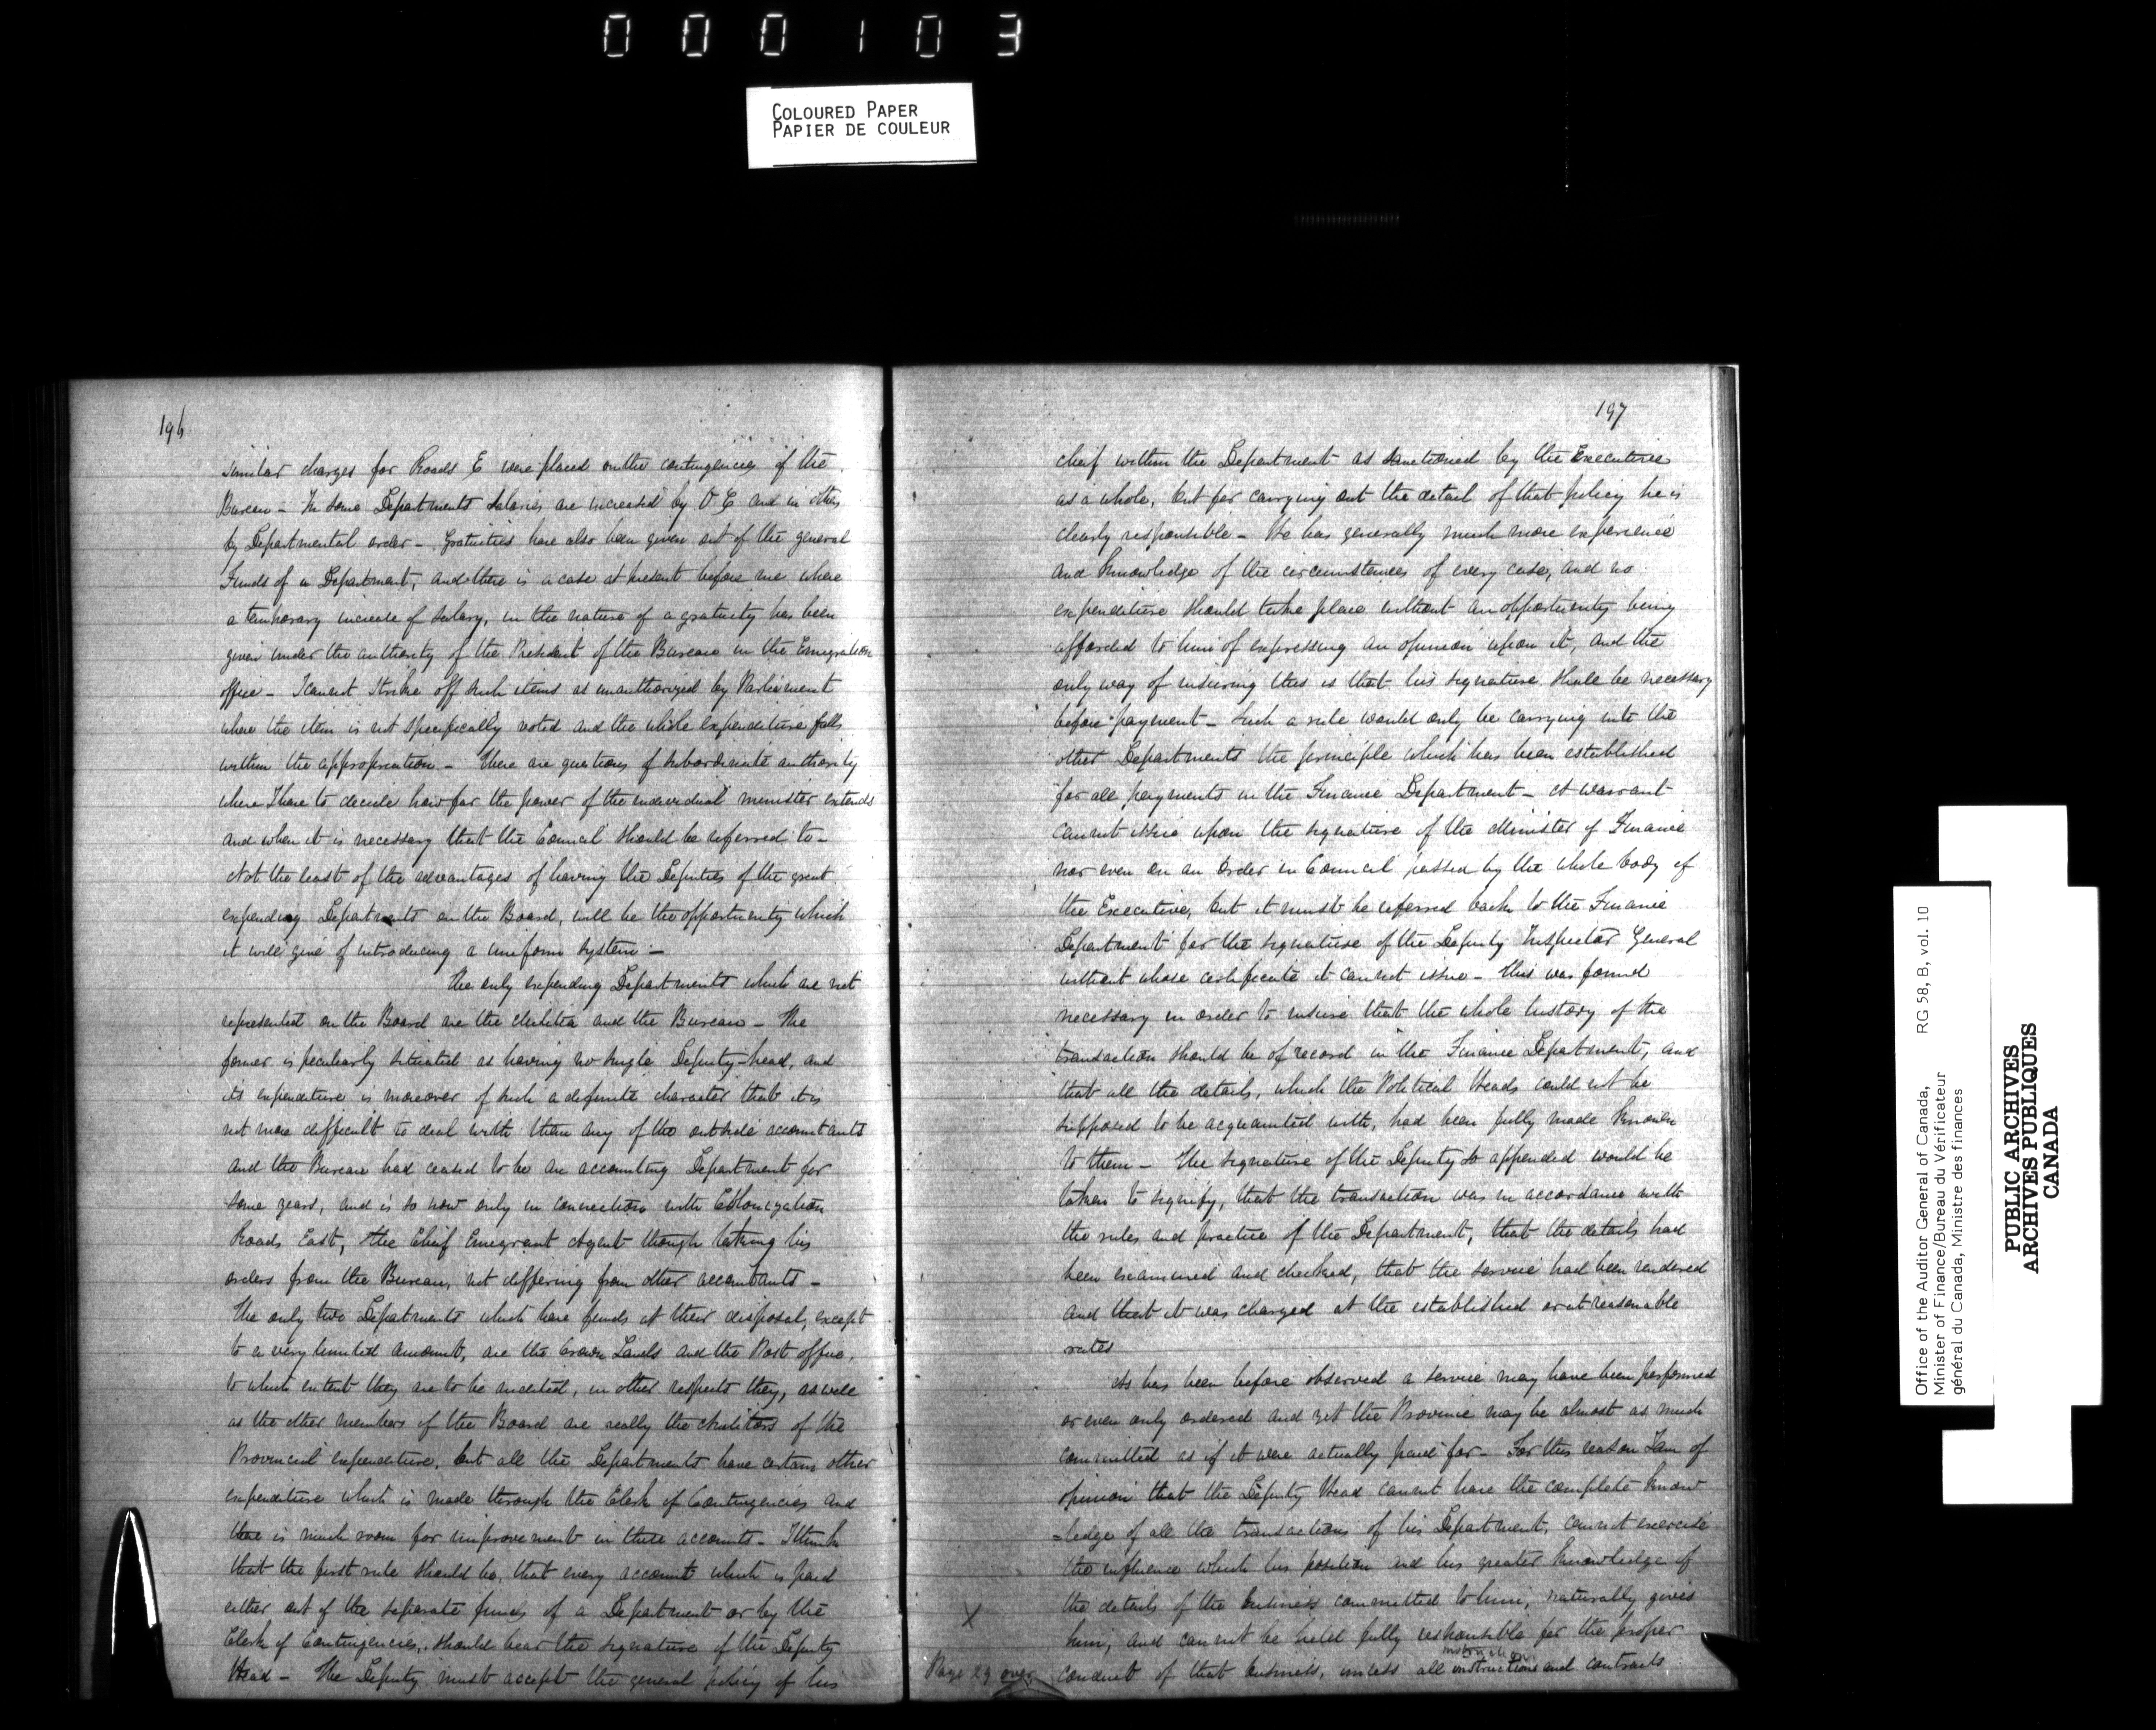 000103
COLOURED PAPER
PAPIER DE COULEUR
196
similar charges for Roads E were placed on the contingencies of the
Bureau - In some Departments Salaries are increased by O C and in others
by Departmental order - Gratuities have also been given out of the general
Funds of a Department, and there is a case at present before me where
a temporary increase of salary, in the nature of a gratuity has been
given under the authority of the President of the Bureau in the Emigration
office - I cannot strike off such items as unauthorized by Parliament
where the item is not specifically voted and the whole expenditure falls
within the appropriation - There are questions of subordinate authority
where I have to decide how far the power of the individual minister extends
and when it is necessary that the Council should be referred to -
Not the least of the advantages of having the Deputies of the great
expending Departments on the Board, will be the opportunity which
it will give of introducing a uniform system -
The only expending Departments which are not
represented on the Board are the Militia and the Bureau - The
former is peculiarly situated as having no single Deputy-head, and
its expenditure is moreover of such a definite character that it is
not more difficult to deal with than any of the outside accountants
and the Bureau had ceased to be an accounting Department for
some years, and is so now only in connection with Colonization
Roads East, the Chief Emigrant Agent though taking his
orders from the Bureau, not differing from other accountants -
The only two Departments which have funds at their disposal, except
to a very limited amount, are the Crown Lands and the Post office,
to which extent they are to be audited, in other respects they, as well
as the other members of the Board are really the Auditors of the
Provincial expenditure, but all the Departments have certain other
expenditure which is made through the Clerk of Contingencies and
there is much room for improvement in these accounts - I think
that the first rule should be, that every account which is paid
either out of the separate funds of a Department or by the
Clerk of Contingencies, should bear the signature of the Deputy
Head - The Deputy must accept the general policy of his
197
cheif within the Department as sanctioned by the Executive
as a whole, but for carrying out the detail of that policy he is
clearly responsible - He has generally much more experience
and knowledge of the circumstances of every case, and no
expenditure should take place without an opportunity being
afforded to him of expressing an opinion upon it, and the
only way of insuring this is that his signature shall be necessary
before payment - Such a rule would only be carrying into the
other Departments the principle which has been established
for all payments in the Finance Department - A warrant
cannot issue upon the signature of the Minister of Finance
nor even on an Order in Council passed by the whole body of
the Executive, but it must be referred back to the Finance
Department for the signature of the Deputy Inspector General
without whose certificate it cannot issue - This was found
necessary in order to insure that the whole history of the
transaction should be of record in the Finance Department, and
that all the details, which the Political Heads could not be
supposed to be acquainted with, had been fully made known
to them - The signature of the Deputy so appended would be
taken to signify, that the transaction was in accordance with
the rules and practice of the Department, that the details had
been examined and checked, that the service had been rendered
and that it was charged at the established or at reasonable
rates
As has been before observed a service may have been performed
or even only ordered and yet the Province may be almost as much
committed as if it were actually paid for - For this reason I am of
opinion that the Deputy Head cannot have the complete know
=ledge of all the transactions of his Department, cannot exercise
the influence which his position and his greater knowledge of
the details of the business committed to him, naturally gives
X
him, and cannot be held fully responsible for the proper
Page 29 over
conduct of that business, unless all instructions and contracts
Office of the Auditor General of Canada, RG 58, B, vol. 10
Minister of Finance/Bureau du Vérificateur
général du Canada, Ministre des finances
PUBLIC ARCHIVES
ARCHIVES PUBLIQUES
CANADA